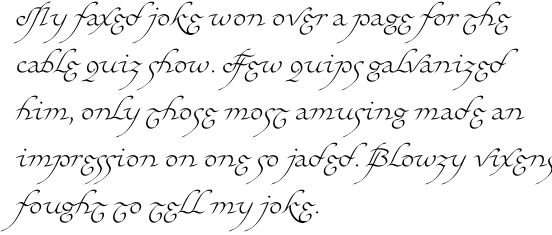 My faxed joke won over a page for the
cable quiz show. Few quips galvanized
him, only those most amusing made an
impression on one so jaded. Blowzy vixens
fought to tell my joke.